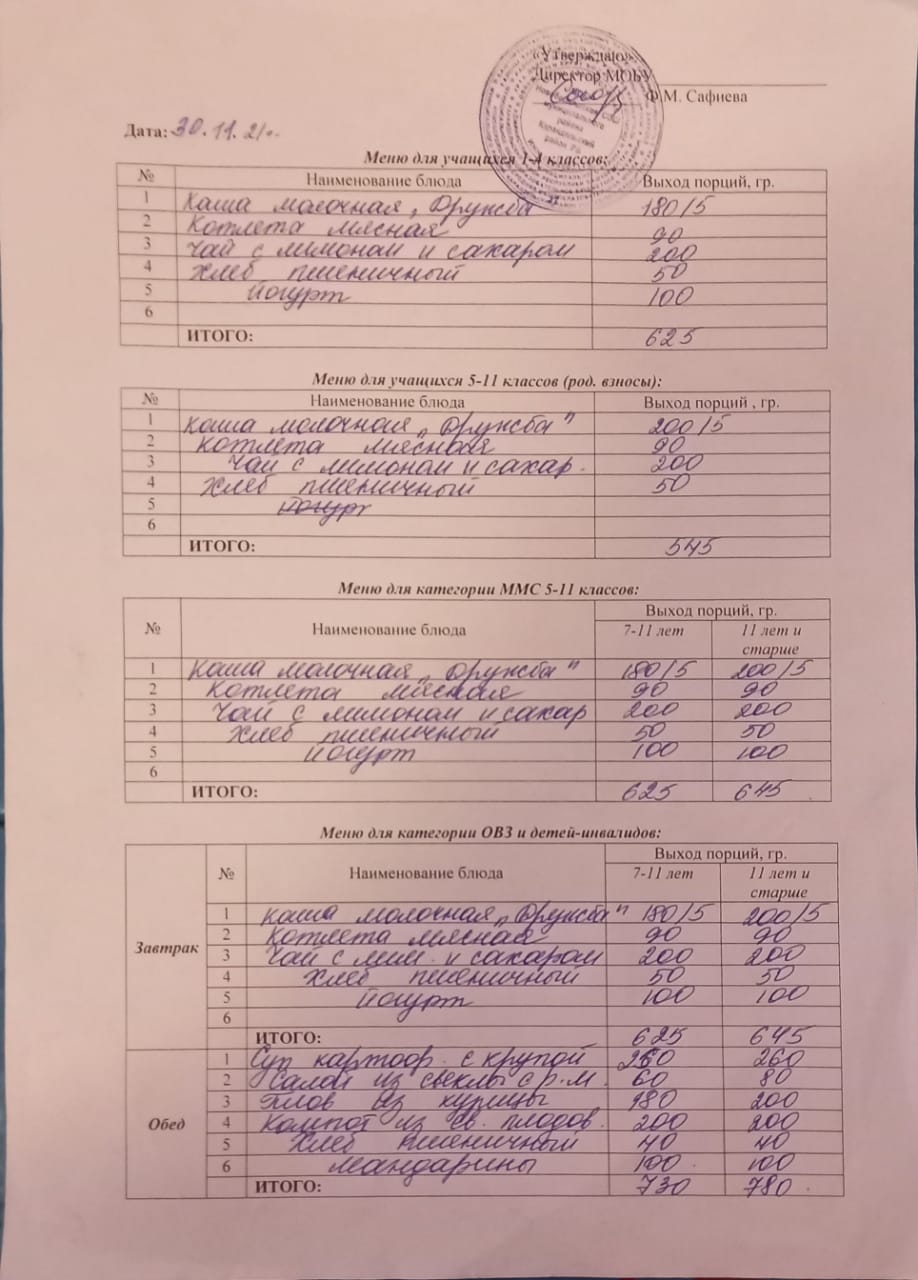 «Утверждаю»
Директор МОБУ
Ф.М. Сафиева
Дата: 30.11.21г.
Меню для учащихся 1-4 классов:
№ Наименование блюда Выход порций, гр.
1 Каша молочная „Дружба" 180/5
2 Котлета мясная 90
3 Чай с лимоном и сахаром 200
4 Хлеб пшеничный 50
5 йогурт 100
6
ИТОГО: 625
Меню для учащихся 5-11 классов (род. взносы):
№ Наименование блюда Выход порций , гр.
1 Каша молочная „Дружба" 200/5
2 Котлета мясная 90
3 Чай с лимоном и сахар. 200
4 Хлеб пшеничный 50
5 йогурт
6
ИТОГО: 545
Меню для категории ММС 5-11 классов:
№ Наименование блюда Выход порций, гр.
7-11 лет 11 лет и
старше
1 Каша молочная „Дружба" 180/5 200/5
2 Котлета мясная 90 90
3 Чай с лимоном и сахар 200 200
4 Хлеб пшеничный 50 50
5 йогурт 100 100
6
ИТОГО: 625 645
Меню для категории ОВЗ и детей-инвалидов:
№ Наименование блюда Выход порций, гр.
7-11 лет 11 лет и
старше
Завтрак
1 Каша молочная „Дружба" 180/5 200/5
2 Котлета мясная 90 90
3 Чай с лим. и сахаром 200 200
4 Хлеб пшеничный 50 50
5 йогурт 100 100
6
ИТОГО: 625 645
Обед
1 Суп картоф. с крупой 260
2 Салат из свеклы с р.м. 60 80
3 Плов из курицы 180 200
4 Компот из св. плодов. 200 200
5 Хлеб пшеничный 40 40
6 мандарины 100 100
ИТОГО: 730 780